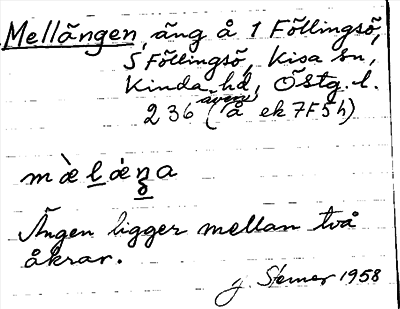 Mellängen, äng å 1 Föllingsö,
S Föllingsö, Kisa sn,
Kinda hd, Östg. l.
även
236 (å ek 7F5h)
mæ̀lǽŋa
Ängen ligger mellan två
åkrar.
J. Sterner 1958